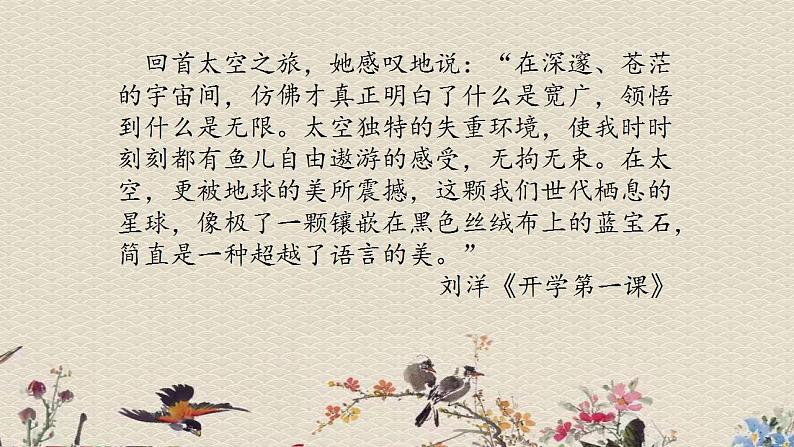 回首太空之旅，她感叹地说：“在深邃、苍茫
的宇宙间，仿佛才真正明白了什么是宽广，领悟
到什么是无限。太空独特的失重环境，使我时时
刻刻都有鱼儿自由遨游的感受，无拘无束。在太
空，更被地球的美所震撼，这颗我们世代栖息的
星球，像极了一颗镶嵌在黑色丝绒布上的蓝宝石，
简直是一种超越了语言的美。”
刘洋《开学第一课》